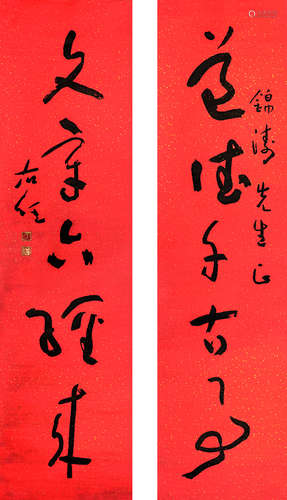 道德千古事
錦濤先生正
文章六經來
右任